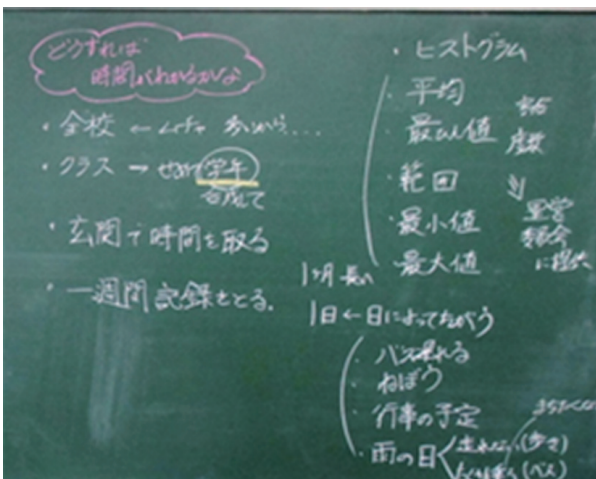 どうすれば
時間がわかるかな
・全校 ← ムチャ 多いから....
・クラス → せめて学年
合成して
・玄関で時間を取る
・一週間記録をとる.
・ヒストグラム
・平均
・最ひん値
・範囲
・最小値
・最大値
度数
に提供
1ヶ月 長い
1日 ← 日によってちがう
・バス遅れる
・ねぼう
・行事の予定
・雨の日
走れない(歩き)
(バス)